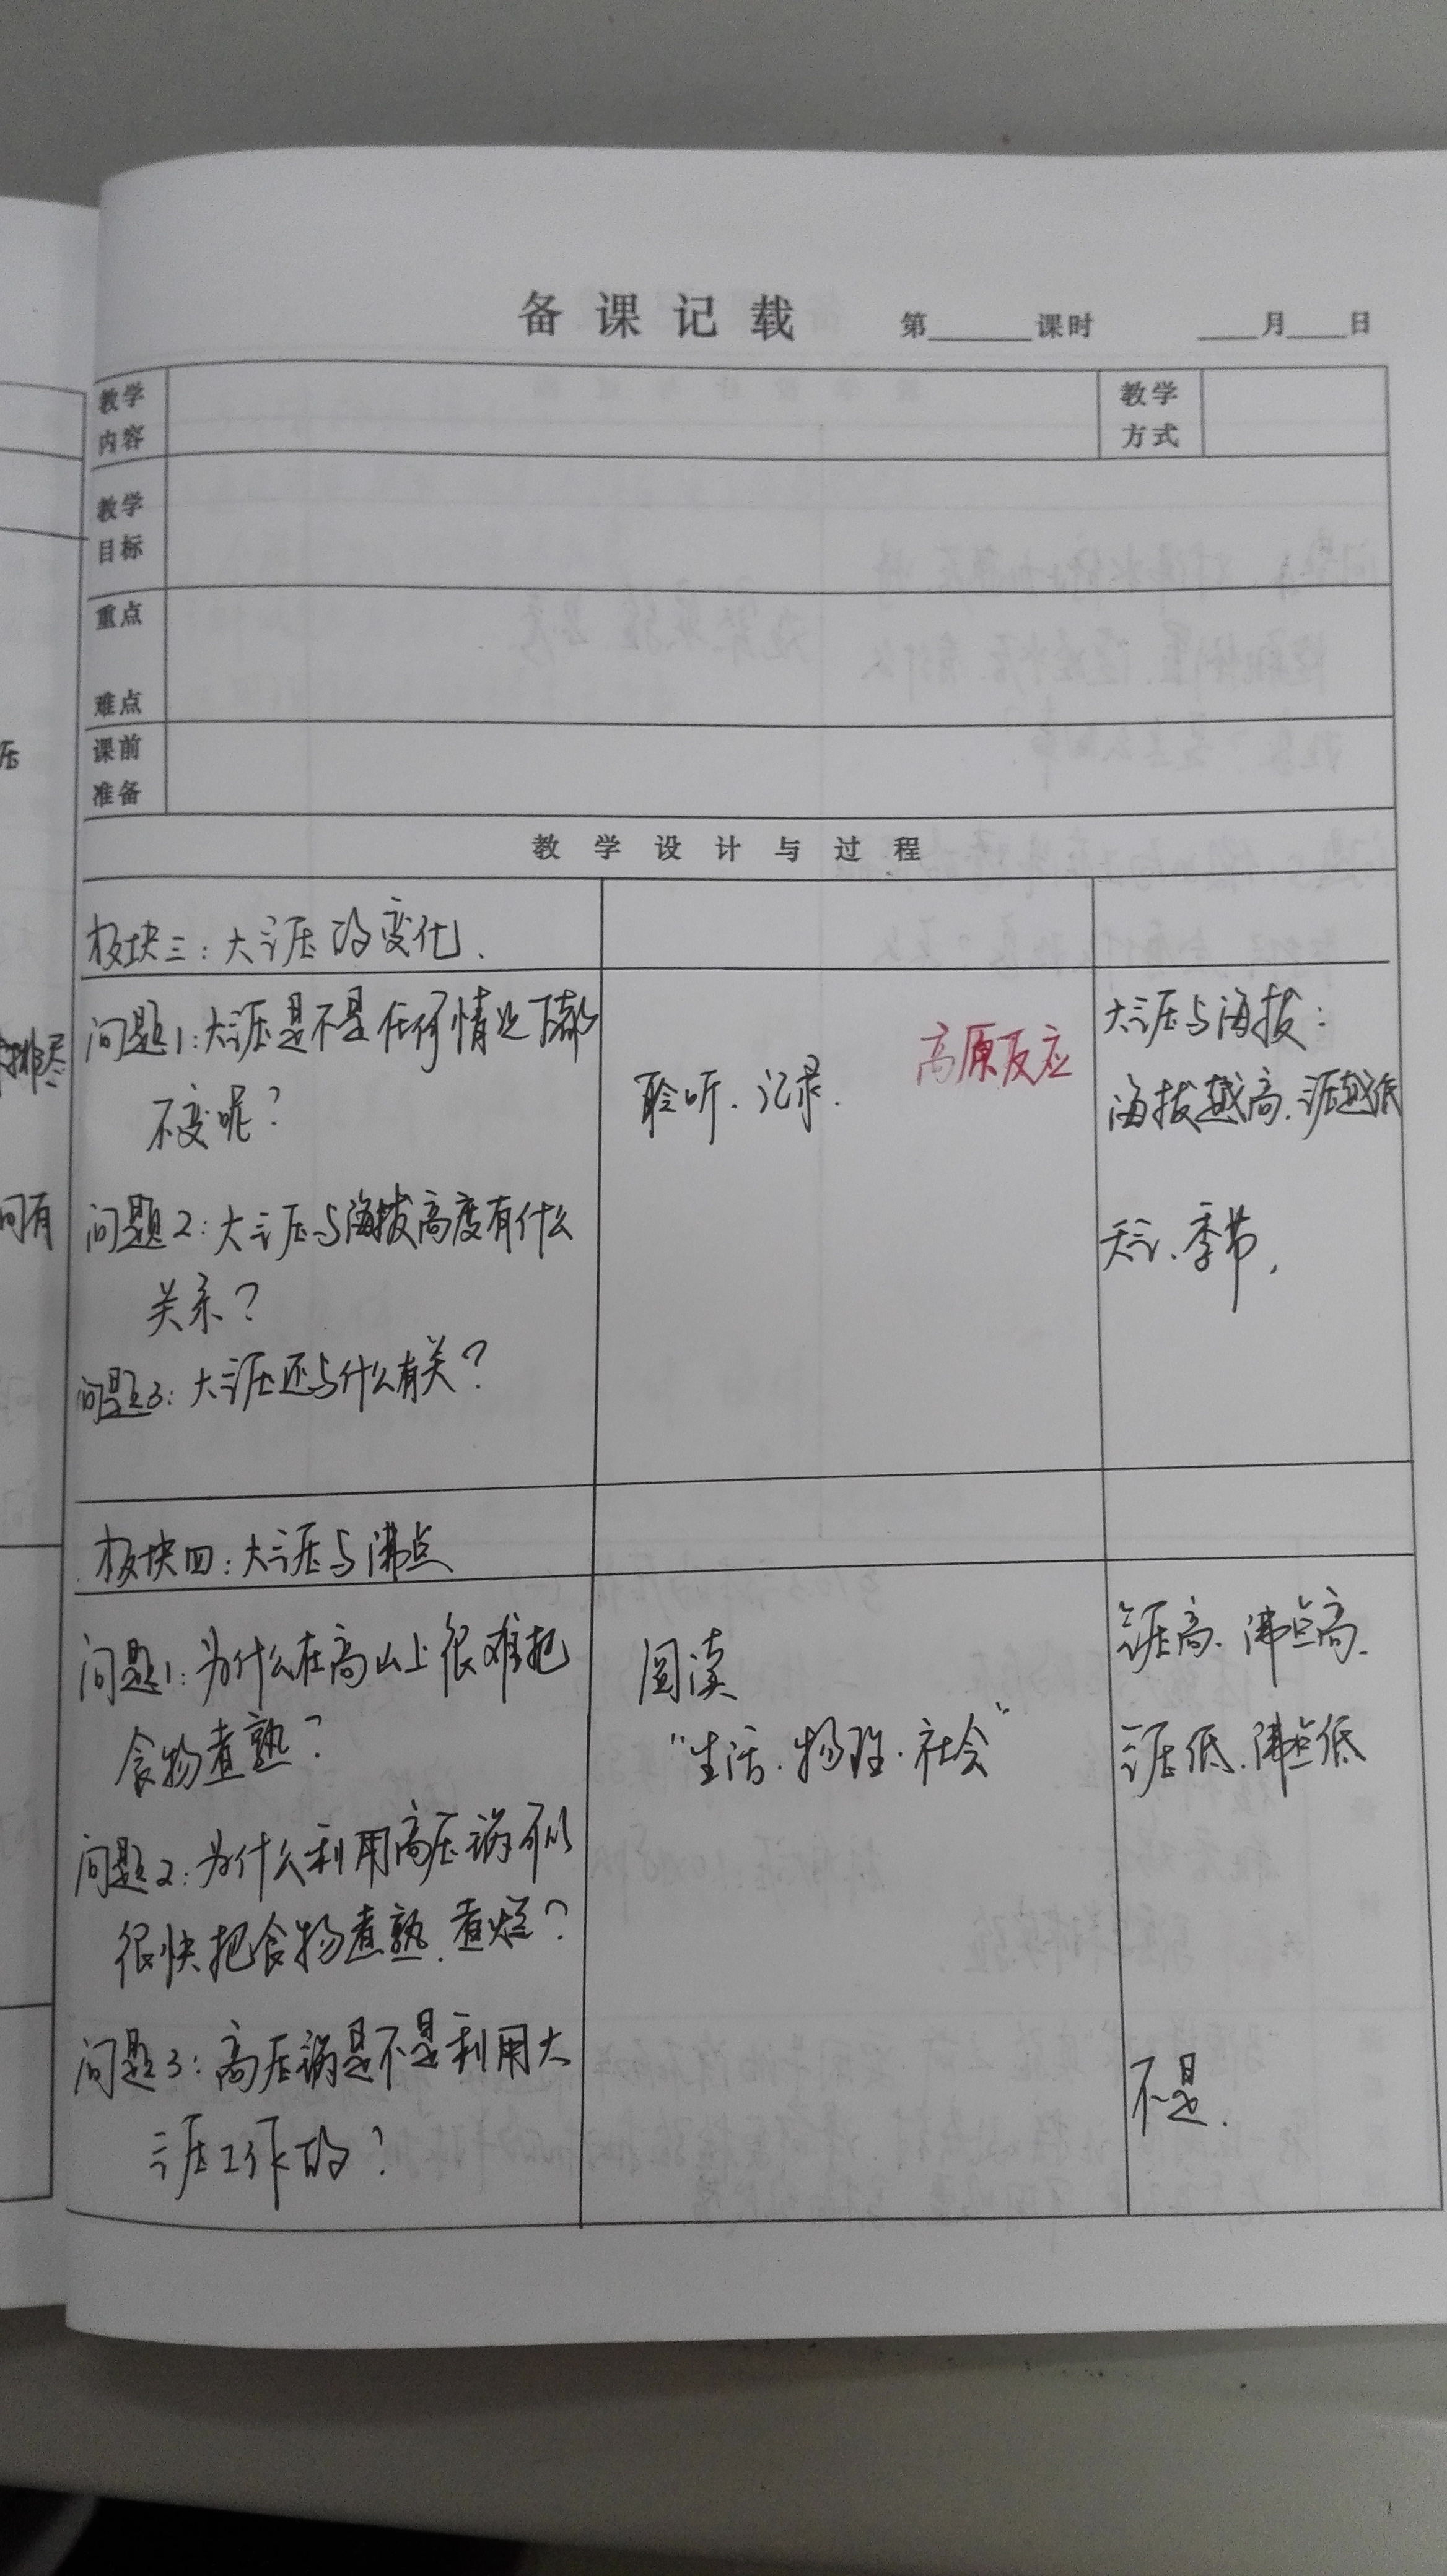 备课记载 第______课时 ____月____日
教学
内容
教学
方式
教学
目标
重点
难点
课前
准备
教学设计与过程
板块三：大气压的变化.
问题1：大气压是不是任何情况下都
不变呢？
聆听、记录.
高原反应
大气压与海拔：
海拔越高、气压越低
问题2：大气压与海拔高度有什么
关系？
天气、季节,
问题3：大气压还与什么有关？
板块四：大气压与沸点
问题1：为什么在高山上很难把
食物煮熟？
阅读
"生活·物理·社会"
气压高、沸点高.
气压低、沸点低
问题2：为什么利用高压锅可以
很快把食物煮熟、煮烂？
问题3：高压锅是不是利用大
气压工作的？
不是.
压
排尽
问有